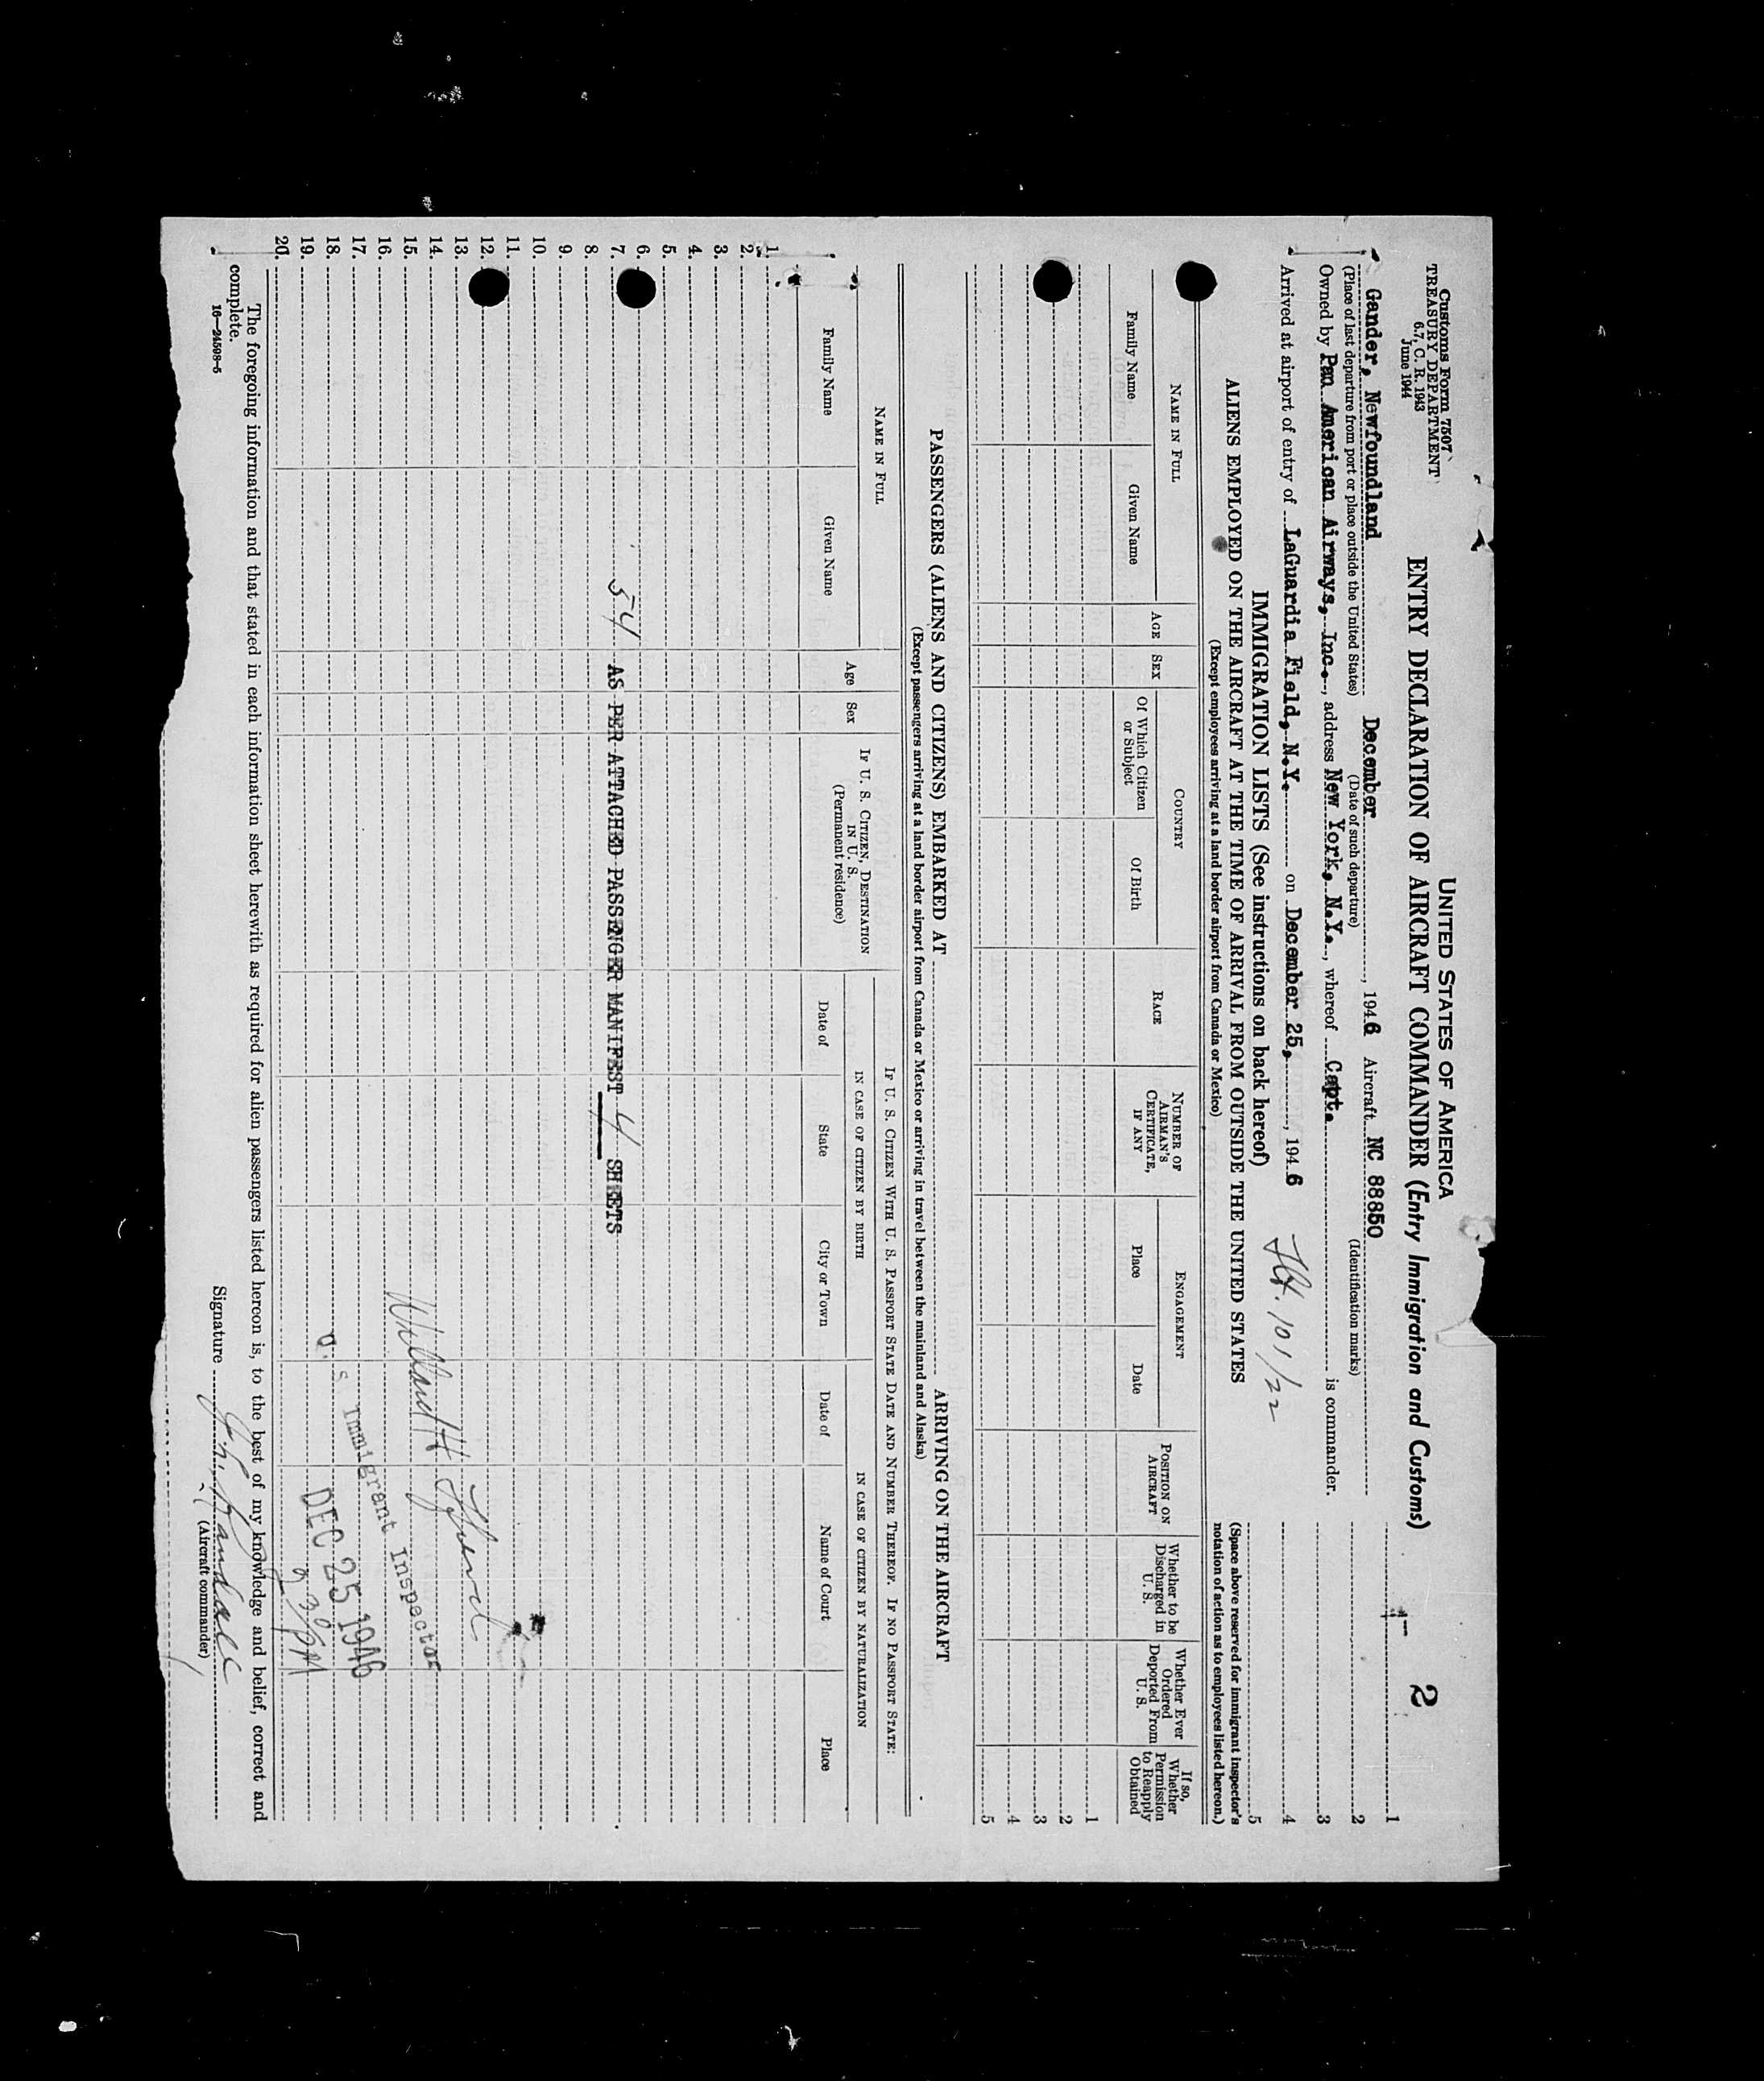 Customs Form 7507
TREASURY DEPARTMENT
6.7, C. R. 1943
June 1944
UNITED STATES OF AMERICA
ENTRY DECLARATION OF AIRCRAFT COMMANDER (Entry Immigration and Customs)
2
Gander, Newfoundland December, 1946 Aircraft NC 88850
(Place of last departure from port or place outside the United States) (Date of such departure) (Identification marks)
Owned by Pan American Airways, Inc., address New York, N.Y., whereof Capt. is commander.
Arrived at airport of entry of LaGuardia Field, N.Y. on December 25, 1946 Flt. 101/22
1
2
3
4
5
IMMIGRATION LISTS (See instructions on back hereof)
ALIENS EMPLOYED ON THE AIRCRAFT AT THE TIME OF ARRIVAL FROM OUTSIDE THE UNITED STATES
(Except employees arriving at a land border airport from Canada or Mexico)
(Space above reserved for immigrant inspector's notation of action as to employees listed hereon.)
NAME IN FULL
Family Name
Given Name
AGE
SEX
COUNTRY
Of Which Citizen or Subject
Of Birth
RACE
NUMBER OF AIRMAN'S CERTIFICATE, IF ANY
ENGAGEMENT
Place
Date
POSITION ON AIRCRAFT
Whether to be Discharged in U. S.
Whether Ever Ordered Deported From U. S.
If so, Whether Permission to Reapply Obtained
1
2
3
4
5
PASSENGERS (ALIENS AND CITIZENS) EMBARKED AT ARRIVING ON THE AIRCRAFT
(Except passengers arriving at a land border airport from Canada or Mexico or arriving in travel between the mainland and Alaska)
NAME IN FULL
Family Name
Given Name
Age
Sex
IF U. S. CITIZEN, DESTINATION IN U. S.
(Permanent residence)
IF U. S. CITIZEN WITH U. S. PASSPORT STATE DATE AND NUMBER THEREOF. IF NO PASSPORT STATE:
IN CASE OF CITIZEN BY BIRTH
IN CASE OF CITIZEN BY NATURALIZATION
Date of
State
City or Town
Date of
Name of Court
Place
1.
2.
3.
4.
5.
6.
7. 54 AS PER ATTACHED PASSENGER MANIFEST 4 SHEETS
8.
9.
10.
11.
12.
13.
14.
15.
16.
17.
18.
19.
20.
U. S. Immigrant Inspector
DEC 25 1946
The foregoing information and that stated in each information sheet herewith as required for alien passengers listed hereon is, to the best of my knowledge and belief, correct and
complete.
16—24598-5
Signature
(Aircraft commander)